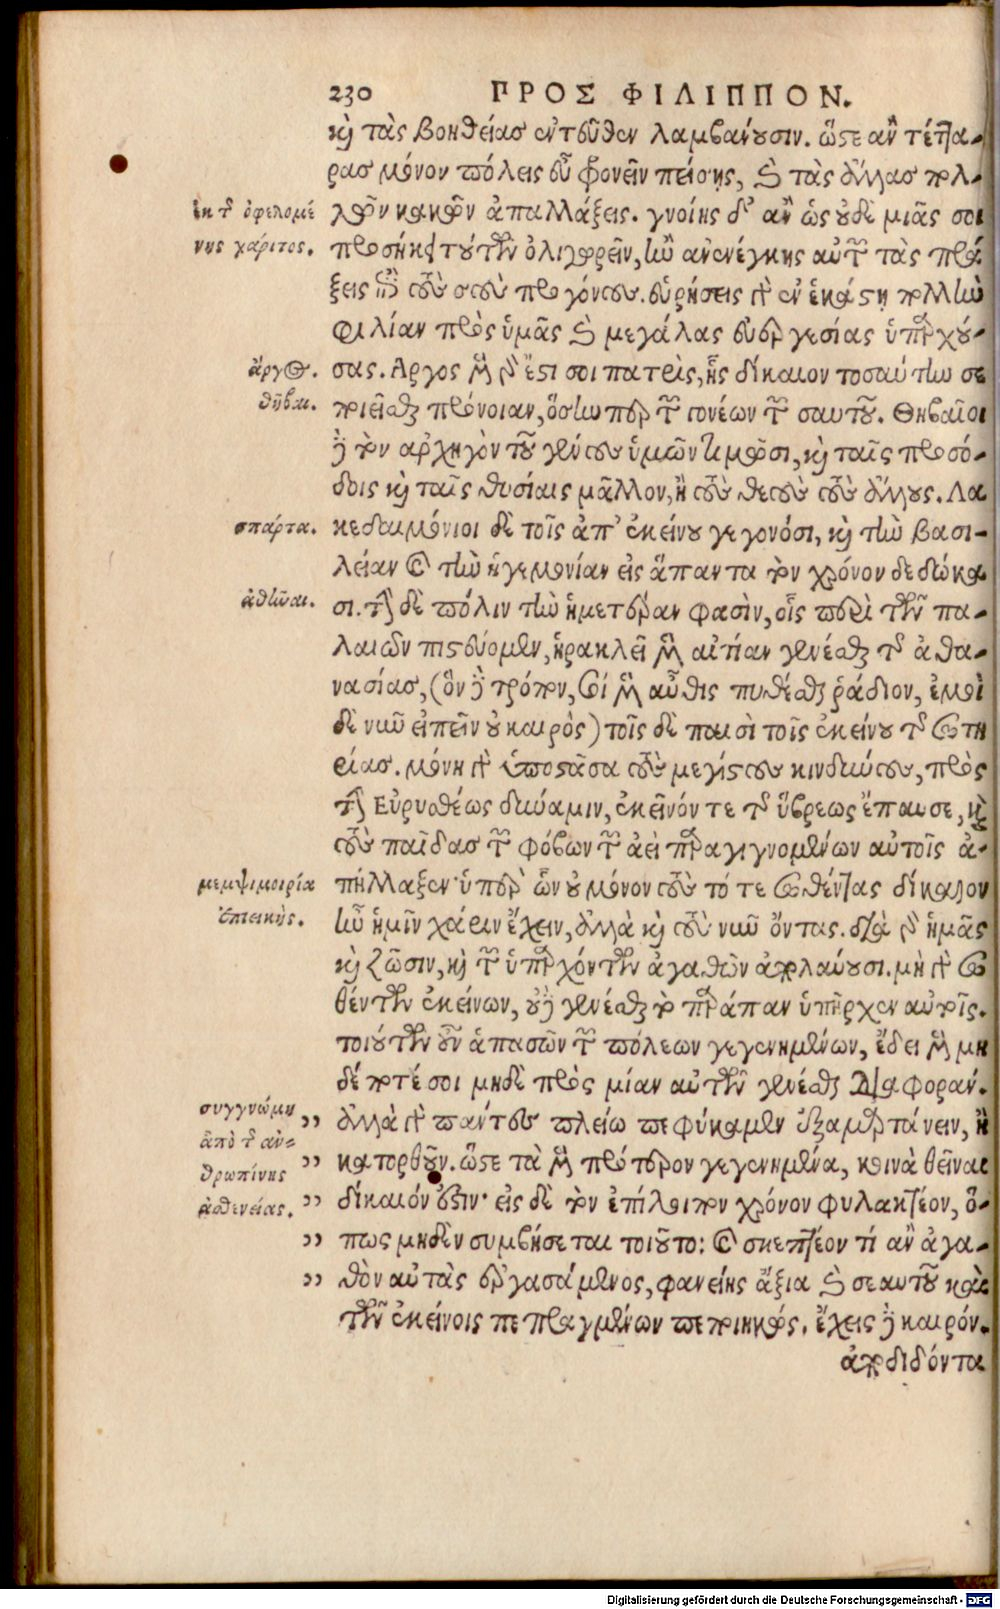 230 ΠΡΟΣ ΦΙΛΙΠΠΟΝ.
καὶ τὰς βοηθείας ἐντεῦθεν λαμβάνουσιν. ὥστε ἂν τέτταρ-
ρας μόνον πόλεις εὖ φρονεῖν πείσῃς, καὶ τὰς ἄλλας πολ-
λῶν κακῶν ἀπαλλάξεις. γνοίης δ' ἂν ὡς οὐδεμιᾶς σοι
ἐκ τῆς ὀφειλομέ
νης χάριτος.
προσήκει τούτων ὀλιγωρεῖν, ἢν ἀνενέγκῃς αὐτῶν τὰς πρά
ξεις ἐπὶ τοὺς σοὺς προγόνους. εὑρήσεις γὰρ ἐν ἑκάστῃ πολλὴν
φιλίαν πρὸς ὑμᾶς καὶ μεγάλας εὐεργεσίας ὑπαρχού-
ἄργος.
σας. Αργος μὲν γάρ ἔστι σοι πατρὶς, ἧς δίκαιον τοσαύτην σε
θῆβαι.
ποιεῖσθαι πρόνοιαν, ὅσην περ τῶν γονέων τῶν σαυτοῦ. Θηβαῖοι
δὲ τὸν ἀρχηγὸν τοῦ γένους ὑμῶν τιμῶσι, καὶ ταῖς προσό-
δοις καὶ ταῖς θυσίαις μᾶλλον, ἢ τοὺς θεοὺς τοὺς ἄλλους. Λα
σπάρτα.
κεδαιμόνιοι δὲ τοῖς ἀπ' ἐκείνου γεγονόσι, καὶ τὴν βασι-
λείαν καὶ τὴν ἡγεμονίαν εἰς ἅπαντα τὸν χρόνον δεδώκα
ἀθῆναι.
σι. τὴν δὲ πόλιν τὴν ἡμετέραν φασὶν, οἷς περὶ τῶν πα-
λαιῶν πιστεύομεν, ἡρακλεῖ μὲν αἰτίαν γενέσθαι τῆς ἀθα-
νασίας, (ὃν δὲ τρόπον, σοὶ μὲν αὖθις πυθέσθαι ῥάδιον, ἐμοὶ
δὲ νῦν εἰπεῖν οὐ καιρὸς) τοῖς δὲ παισὶ τοῖς ἐκείνου τῆς σωτη
ρίας. μόνη γὰρ ὑποστᾶσα τοὺς μεγίστους κινδύνους, πρὸς
τὴν Εὐρυσθέως δύναμιν, ἐκεῖνόν τε τῆς ὕβρεως ἔπαυσε, καὶ
τοὺς παῖδας τῶν φόβων τῶν ἀεὶ παραγιγνομένων αὐτοῖς ἀ-
μεμψιμοιρία
ἐπιεικής.
πήλλαξεν· ὑπὲρ ὧν οὐ μόνον τοὺς τότε σωθέντας δίκαιον
ἦν ἡμῖν χάριν ἔχειν, ἀλλὰ καὶ τοὺς νῦν ὄντας. διὰ γὰρ ἡμᾶς
καὶ ζῶσιν, καὶ τῶν ὑπαρχόντων ἀγαθῶν ἀπολαύουσι. μὴ γὰρ σω
θέντων ἐκείνων, οὐδὲ γενέσθαι τὸ παράπαν ὑπῆρχεν αὐτοῖς.
τοιούτων οὖν ἁπασῶν τῶν πόλεων γεγενημένων, ἔδει μὲν μη
δέποτέ σοι μηδὲ πρὸς μίαν αὐτῶν γενέσθαι διαφοράν.
συγγνώμη
ἀπὸ τῆς ἀν-
θρωπίνης
ἀσθενείας.
,, ἀλλὰ γὰρ πάντες πλείω πεφύκαμεν ἐξαμαρτάνειν, ἢ
,, κατορθοῦν. ὥστε τὰ μὲν πρότερον γεγενημένα, κοινὰ θεῖναι
,, δίκαιόν ἐστιν· εἰς δὲ τὸν ἐπίλοιπον χρόνον φυλακτέον, ὅ-
,, πως μηδὲν συμβήσεταί τοιοῦτο: καὶ σκεπτέον τί ἂν ἀγα-
,, θὸν αὐτὰς ἐργασάμενος, φανείης ἄξια καὶ σεαυτοῦ καὶ
τῶν ἐκείνοις πεπραγμένων πεποιηκώς. ἔχεις δὲ καιρόν.
ἀποδιδόντα
Digitalisierung gefördert durch die Deutsche Forschungsgemeinschaft - DFG